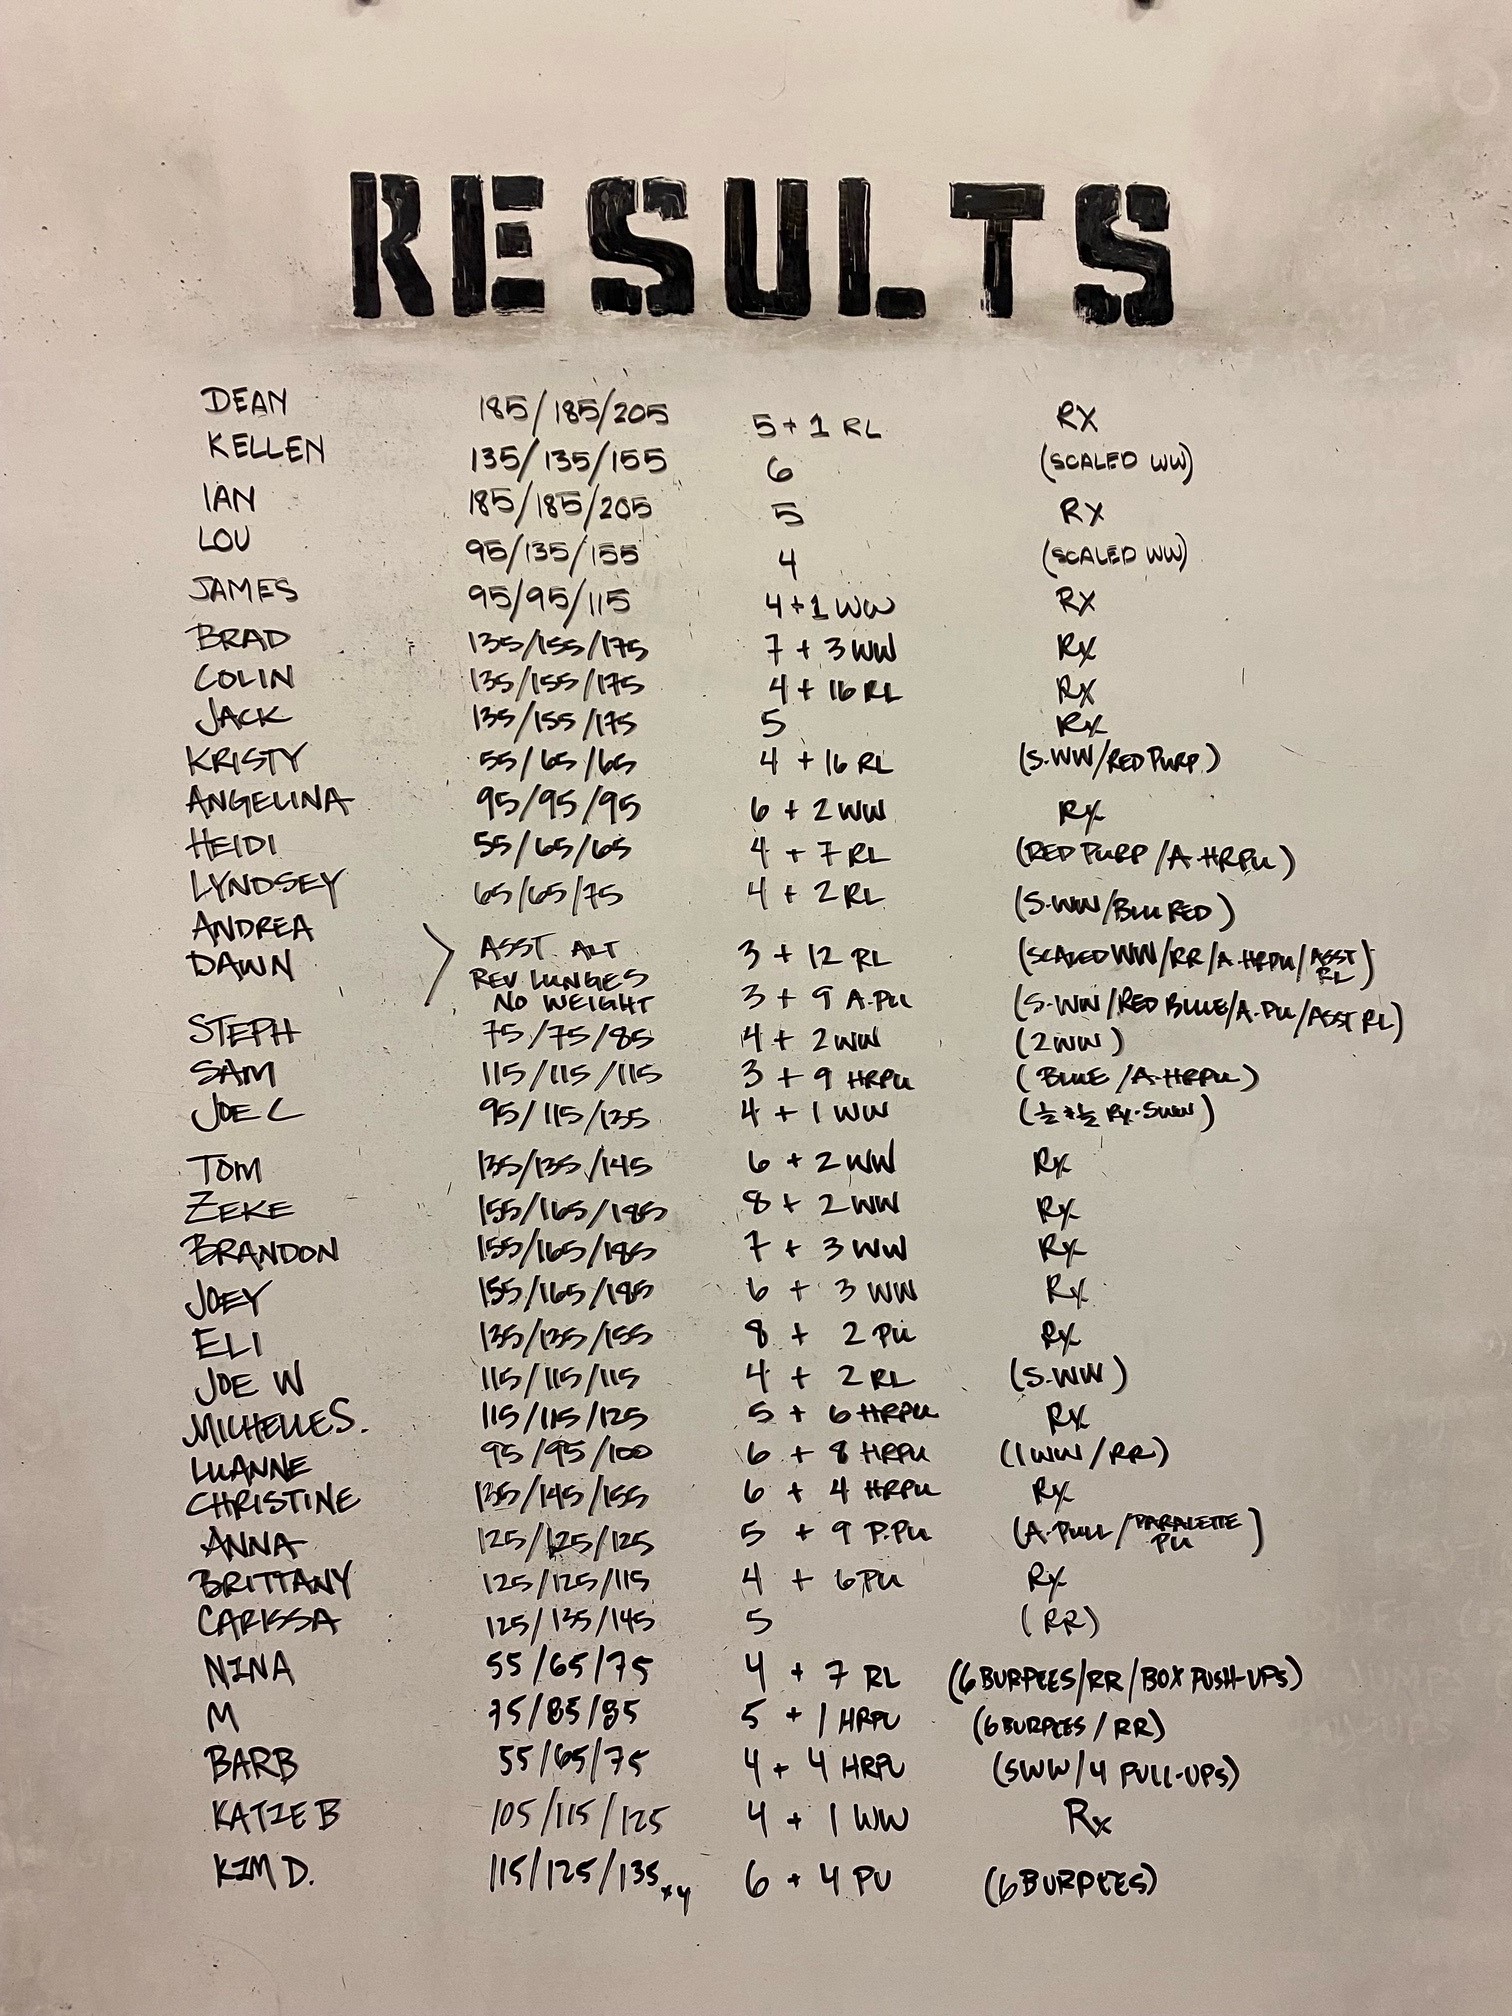 RESULTS
DEAN 185/185/205 5+1 RL RX
KELLEN 135/135/155 6 (SCALED WW)
IAN 185/185/205 5 RX
LOU 95/135/155 4 (SCALED WW)
JAMES 95/95/115 4+1 WW RX
BRAD 135/155/175 7 + 3 WW RX
COLIN 135/155/175 4 + 16 RL RX
JACK 135/155/175 5 RX
KRISTY 55/65/65 4 + 16 RL (S.WW/RED PURP)
ANGELINA 95/95/95 6 + 2 WW RX
HEIDI 55/65/65 4 + 7 RL (RED PURP/A.HRPU)
LYNDSEY 65/65/75 4 + 2 RL (S.WW/BLU RED)
ANDREA
DAWN > ASST. ALT 3 + 12 RL (SCALED WW/RR/A.HRPU/ASST RL)
REV LUNGES
NO WEIGHT 3 + 9 A.PU (S.WW/RED BLUE/A.PU/ASST RL)
STEPH 75/75/85 4 + 2 WW (2WW)
SAM 115/115/115 3 + 9 HRPU (BLUE/A.HRPU)
JOE C 95/115/135 4 + 1 WW (½+½ RX-SWW)
TOM 135/135/145 6 + 2 WW RX
ZEKE 155/165/185 8 + 2 WW RX
BRANDON 155/165/185 7 + 3 WW RX
JOEY 155/165/185 6 + 3 WW RX
ELI 135/135/155 8 + 2 PU RX
JOE W 115/115/115 4 + 2 RL (S.WW)
MICHELLE S. 115/115/125 5 + 6 HRPU RX
LUANNE 95/95/100 6 + 8 HRPU (1WW/RR)
CHRISTINE 135/145/155 6 + 4 HRPU RX
ANNA 125/125/125 5 + 9 P.PU (A.PULL/PARALETTE PU)
BRITTANY 125/125/115 4 + 6 PU RX
CARISSA 125/135/145 5 (RR)
NINA 55/65/75 4 + 7 RL (6 BURPEES/RR/BOX PUSH-UPS)
M 75/85/85 5 + 1 HRPU (6 BURPEES/RR)
BARB 55/65/75 4 + 4 HRPU (SWW/4 PULL-UPS)
KATIE B 105/115/125 4 + 1 WW Rx
KIM D. 115/125/135 x4 6 + 4 PU (6 BURPEES)